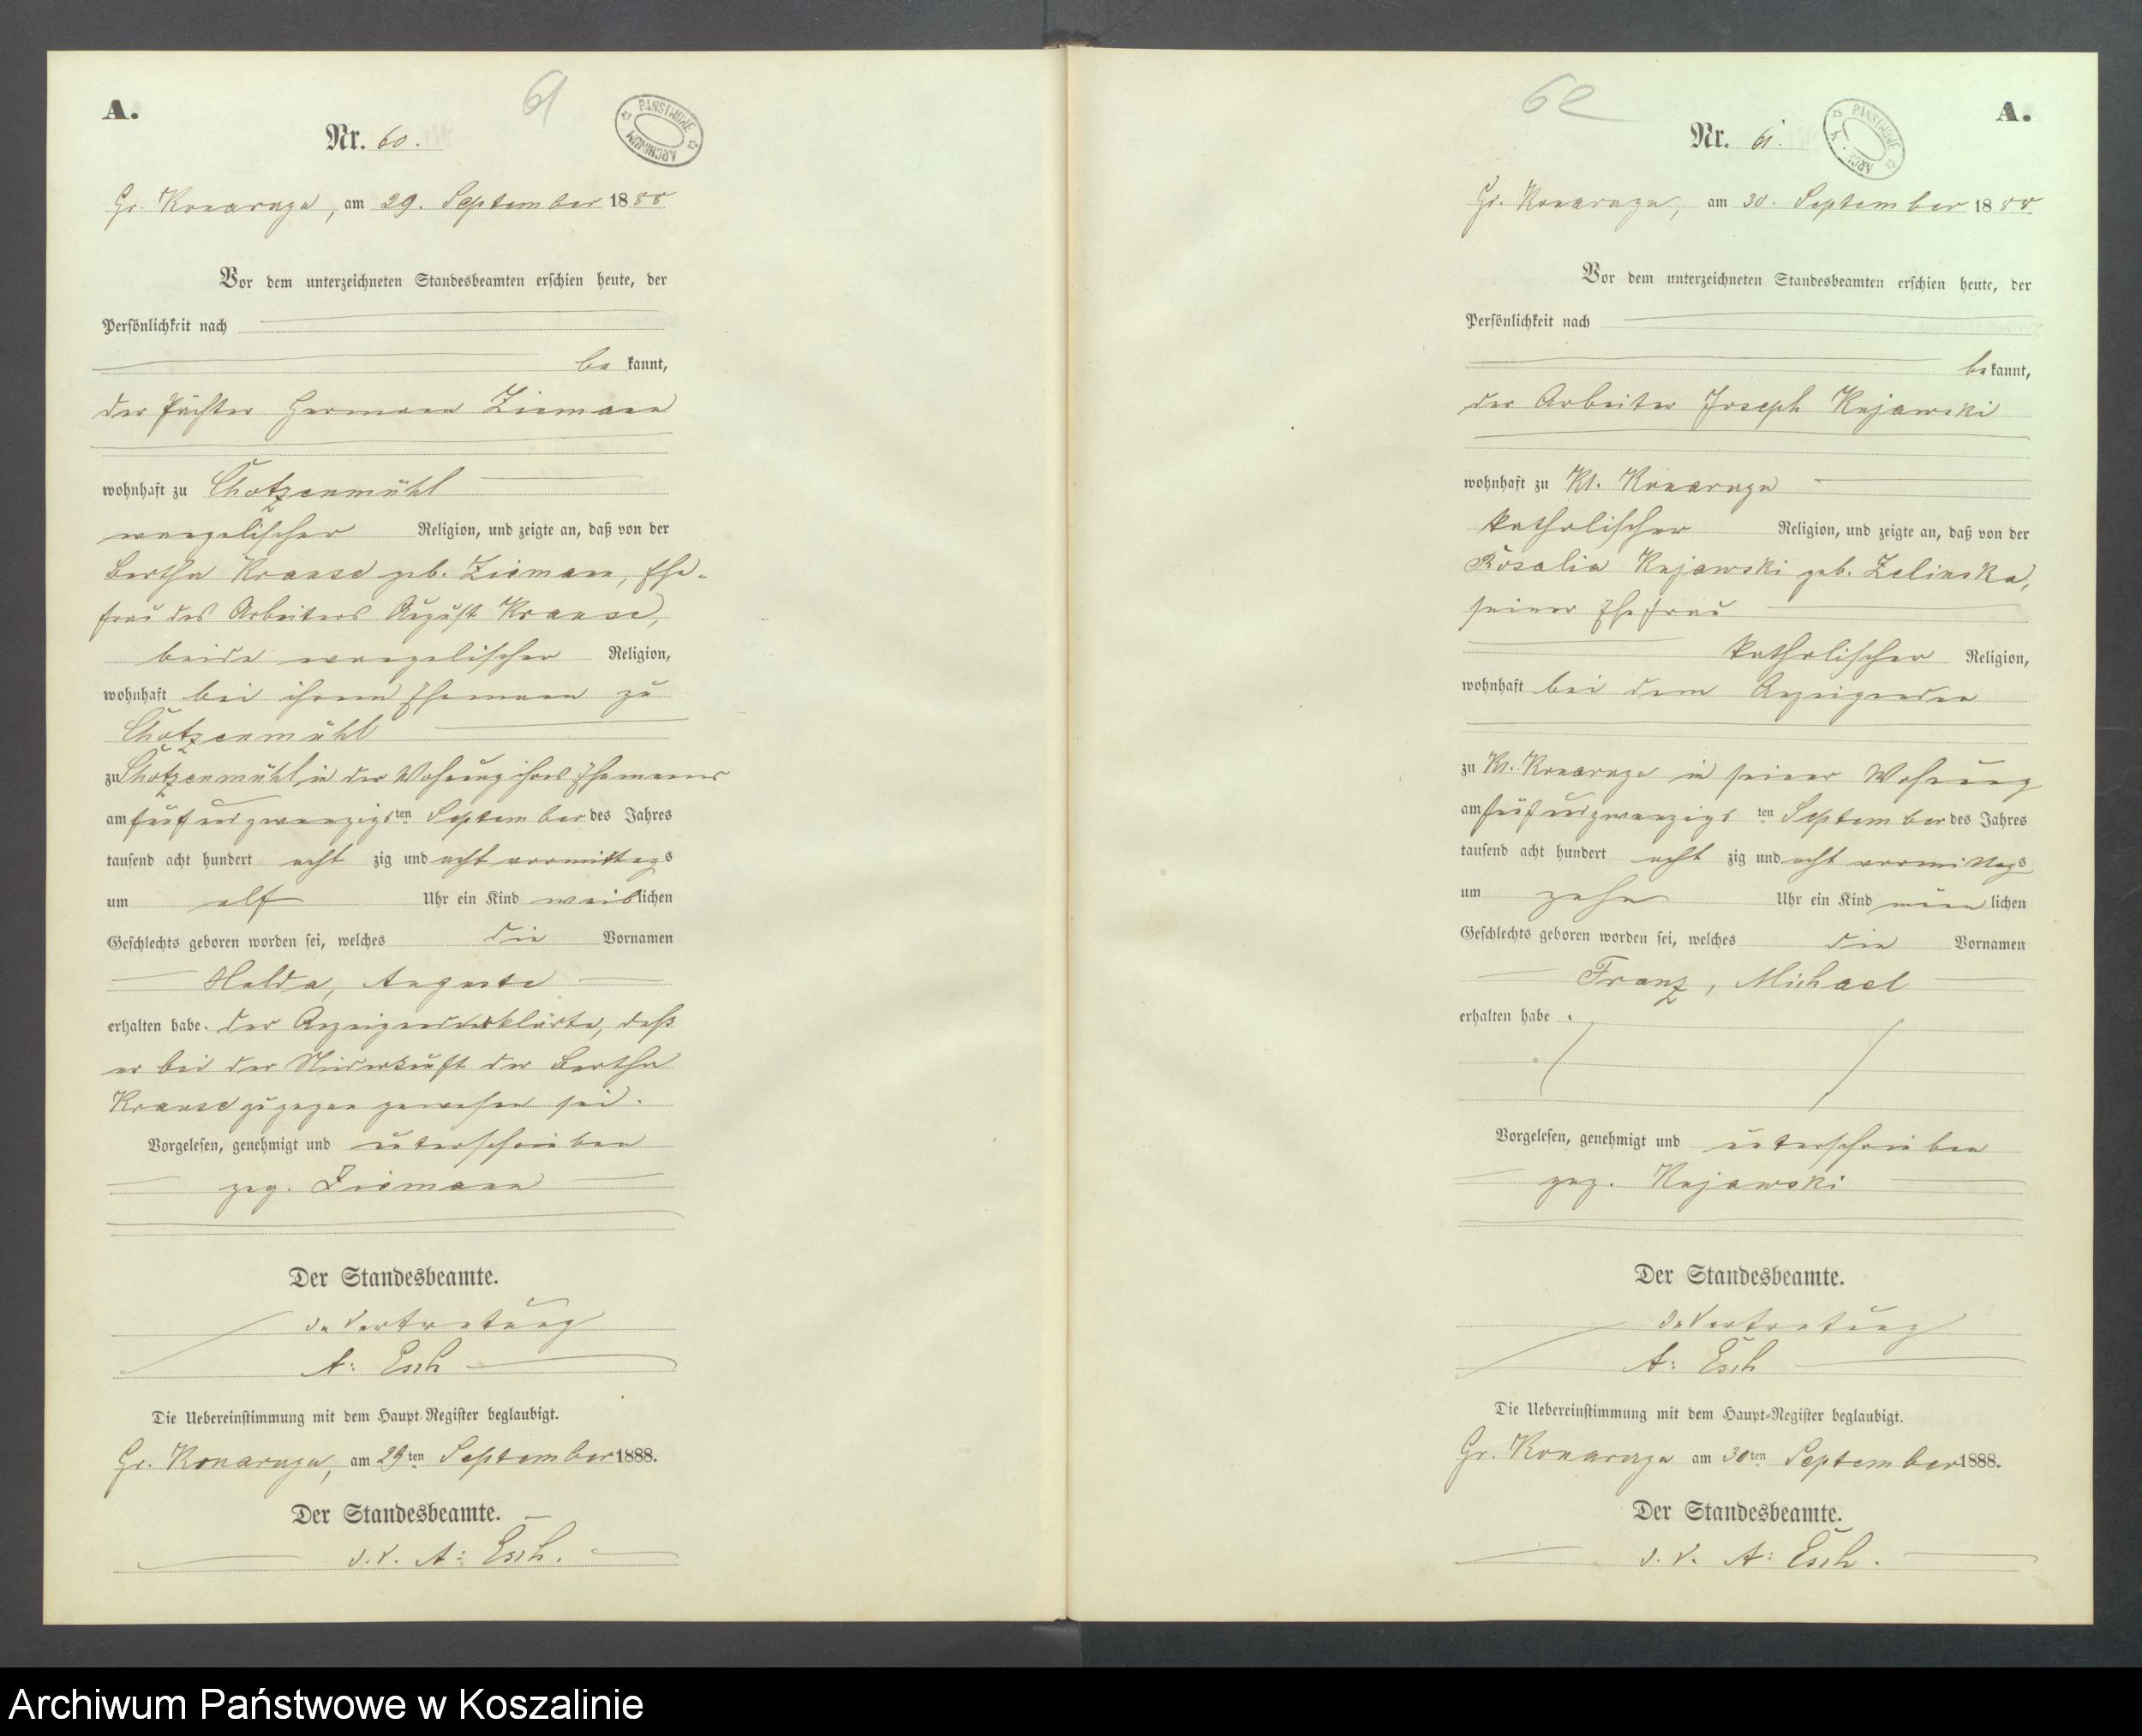 A.
61
PAŃSTWOWE ARCHIWUM
Nr. 60.
Gr. Konarzyn, am 29. September 1888
Vor dem unterzeichneten Standesbeamten erschien heute, der
Persönlichkeit nach
be kannt,
der Pächter Hermann Ziemann
wohnhaft zu Chotzenmühl
evangelischer Religion, und zeigte an, daß von der
Bertha Krause geb. Ziemann, Ehe-
frau des Arbeiters August Krause,
beide evangelischer Religion,
wohnhaft bei ihrem Ehemann zu
Chotzenmühl
zu Chotzenmühl in der Wohnung ihres Ehemannes
am fünfundzwanzigsten September des Jahres
tausend acht hundert acht zig und acht vormittags
um elf Uhr ein Kind weiblichen
Geschlechts geboren worden sei, welches die Vornamen
Hulda, Auguste
erhalten habe. Der Anzeigende erklärte, daß
er bei der Niederkunft der Bertha
Krause zugegen gewesen sei.
Vorgelesen, genehmigt und unterschrieben
gez. Ziemann
Der Standesbeamte.
In Vertretung
A: Esch
Die Uebereinstimmung mit dem Haupt-Register beglaubigt.
Gr. Konarzyn, am 29ten September 1888.
Der Standesbeamte.
I. V. A: Esch.
A.
62
PAŃSTWOWE
Nr. 61.
Gr. Konarzyn, am 30. September 1888
Vor dem unterzeichneten Standesbeamten erschien heute, der
Persönlichkeit nach
be kannt,
der Arbeiter Joseph Kujawski
wohnhaft zu Kl. Konarzyn
katholischer Religion, und zeigte an, daß von der
Rosalia Kujawski geb. Zelinska,
seiner Ehefrau
katholischer Religion,
wohnhaft bei dem Anzeigenden
zu Kl. Konarzyn in seiner Wohnung
am fünfundzwanzigs ten September des Jahres
tausend acht hundert acht zig und acht vormittags
um zehn Uhr ein Kind männ lichen
Geschlechts geboren worden sei, welches die Vornamen
Franz, Michael
erhalten habe.
Vorgelesen, genehmigt und unterschrieben
gez. Kujawski
Der Standesbeamte.
In Vertretung
A: Esch
Die Uebereinstimmung mit dem Haupt-Register beglaubigt.
Gr. Konarzyn am 30ten September 1888.
Der Standesbeamte.
I. V. A: Esch.
Archiwum Państwowe w Koszalinie